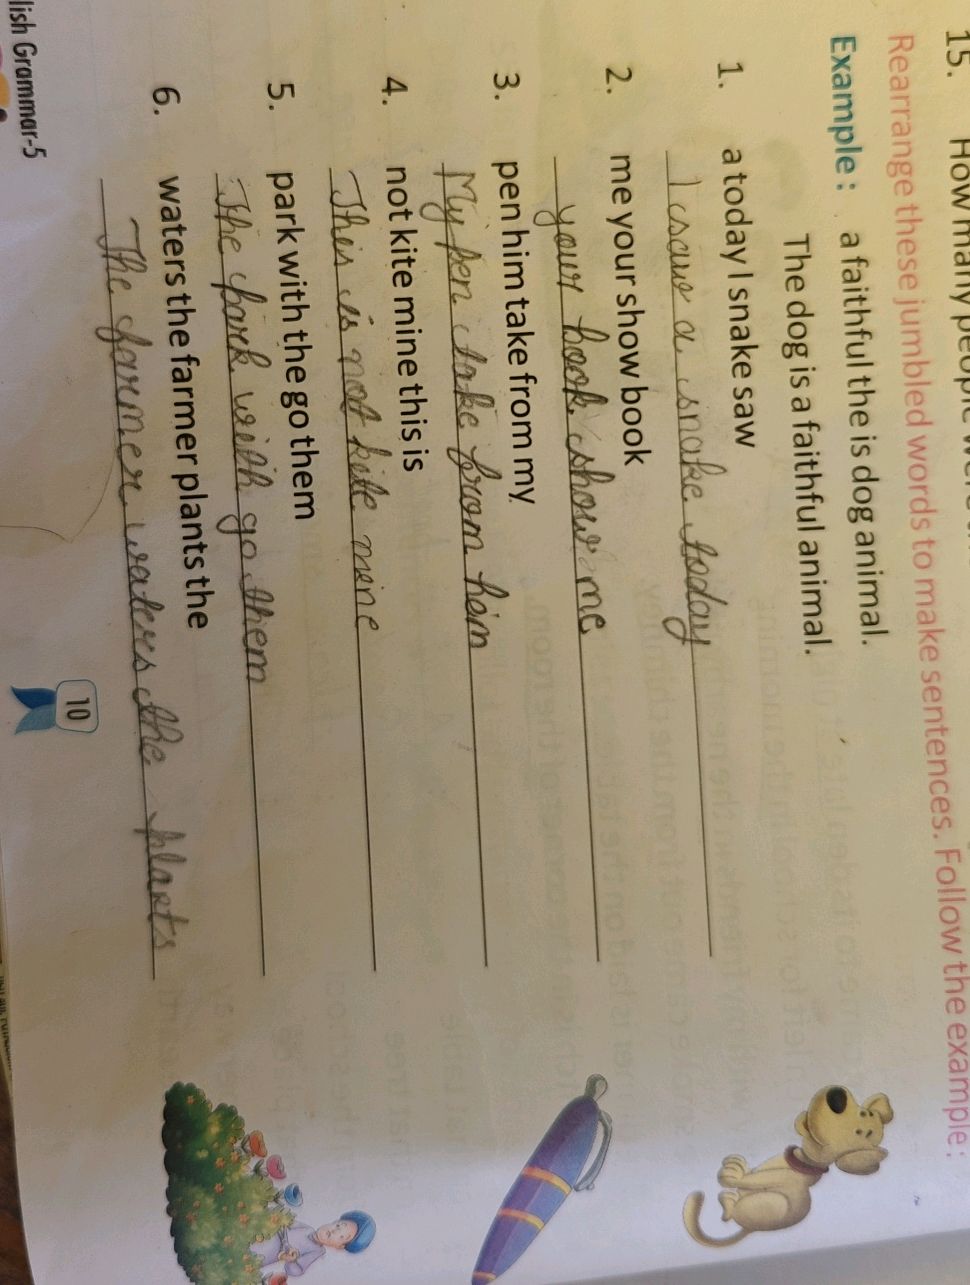 15. How many people were
Rearrange these jumbled words to make sentences. Follow the example:
Example : a faithful the is dog animal.
The dog is a faithful animal.
1. a today I snake saw
I saw a snake today
2. me your show book
your book show me
3. pen him take from my
My pen take from him
4. not kite mine this is
This is not kite mine
5. park with the go them
The park with go them
6. waters the farmer plants the
The farmer waters the plants
10
lish Grammar-5